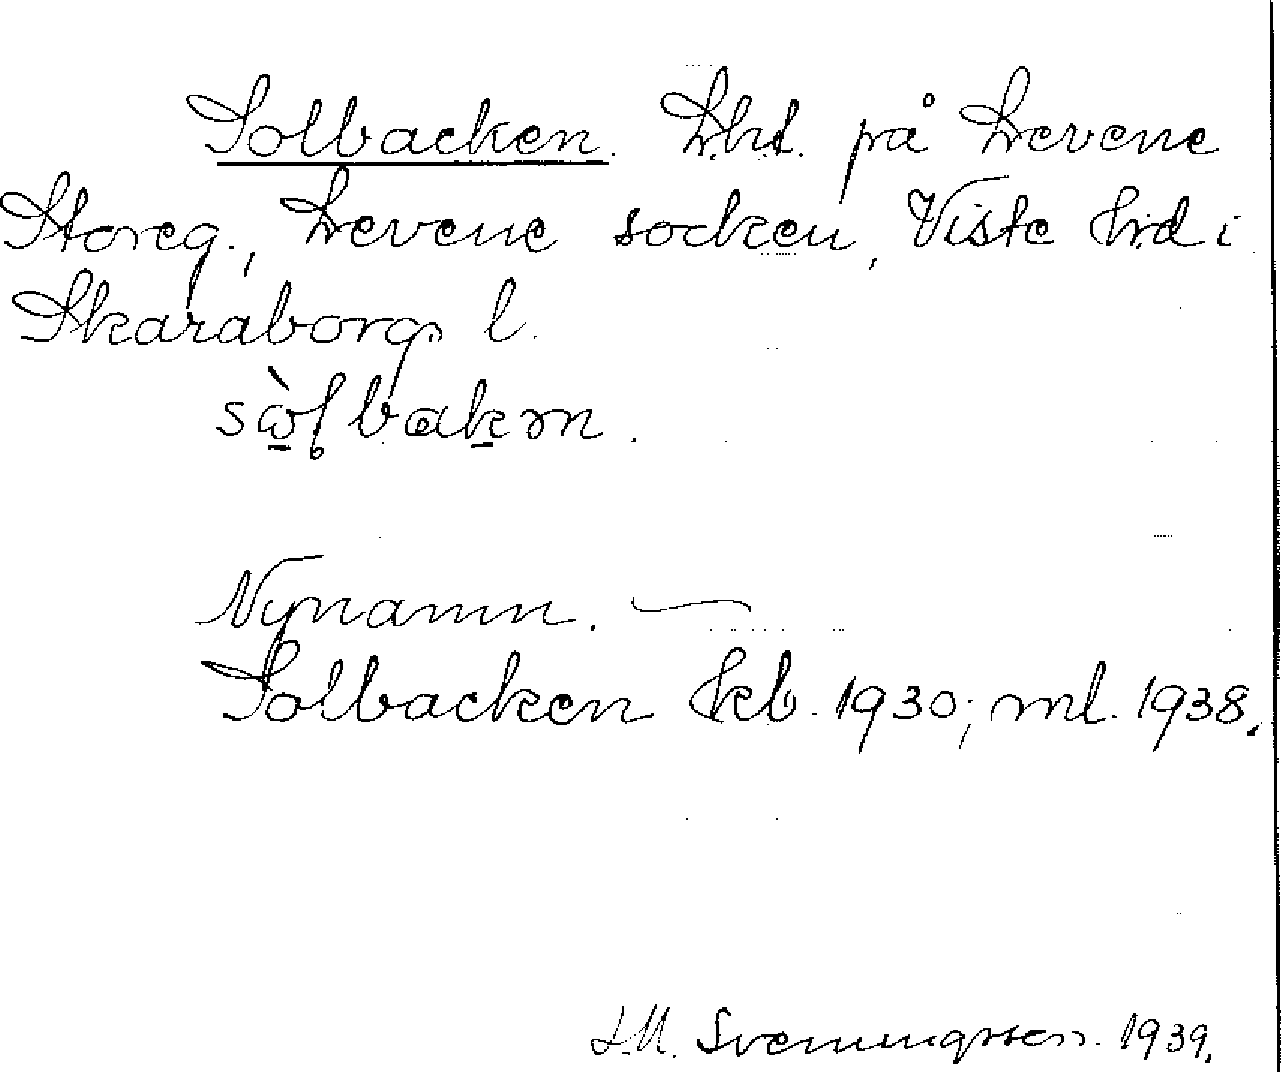 Solbacken. Lht. på Levene
Storeg., Levene socken, Viste hrd i
Skaraborgs l.
Nynamn. —
Solbacken kb. 1930; ml. 1938.
S.M. Svenungsson. 1939.